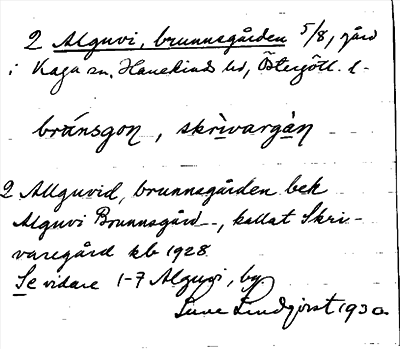 2 Alguvi, brunnsgården 5/8, gård
i Kaga sn, Hanekinds hd, Östergötl. l.
bránsgon, skrìvargàn
2 Allguvid, brunnsgården bek
Alguvi Brunnsgård –, kallat Skri-
varegård kb 1928
Se vidare 1-7 Alguvi, by
Sune Lindqvist 1930